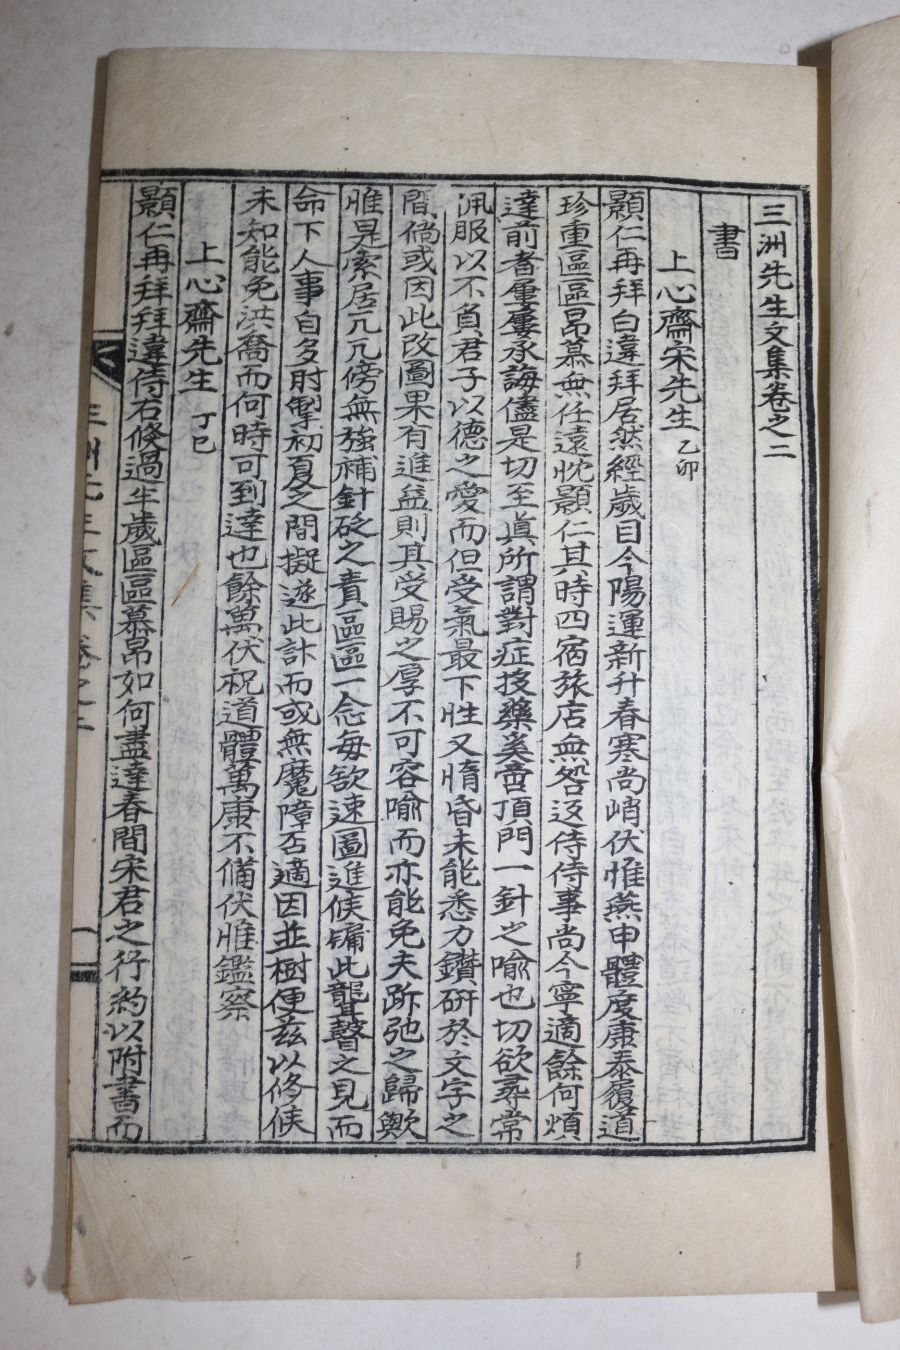 三洲先生文集卷之二
書
上心齋宋先生 乙卯
顯仁再拜白違拜居然經歲目今陽運新升春寒尚峭伏惟燕申體度康泰履道
珍重區區昂慕無任遠忱顯仁其時四宿旅店無咎返侍侍事尚今寧適餘何煩
達前者屢屢承誨儘是切至眞所謂對症投藥奚啻頂門一針之喩也切欲尋常
佩服以不負君子以德之愛而但受氣最下性又惰昏未能悉力鑽硏於文字之
間倘或因此改圖果有進益則其受賜之厚不可容喩而亦能免夫跅弛之歸歟
惟是索居兀兀傍無強補針砭之責區區一念每欲速圖進候牖此聾瞽之見而
命下人事自多肘掣初夏之間擬遂此計而或無魔障否適因並樹便玆以修候
未知能免洪喬而何時可到達也餘萬伏祝道體萬康不備伏惟鑑察
上心齋先生 丁巳
顯仁再拜拜違侍右倏過半歲區區慕昂如何盡達春間宋君之行約以附書而
三洲先生文集 卷之二
一